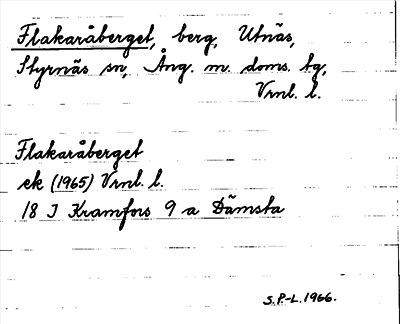 Flakaråberget, berg, Utnäs,
Styrnäs sn, Ång. m. doms. tg,
Vrnl. l.
Flakaråberget
ek (1965) Vrnl. l.
18 I Kramfors 9 a Dämsta
S.P-L.1966.